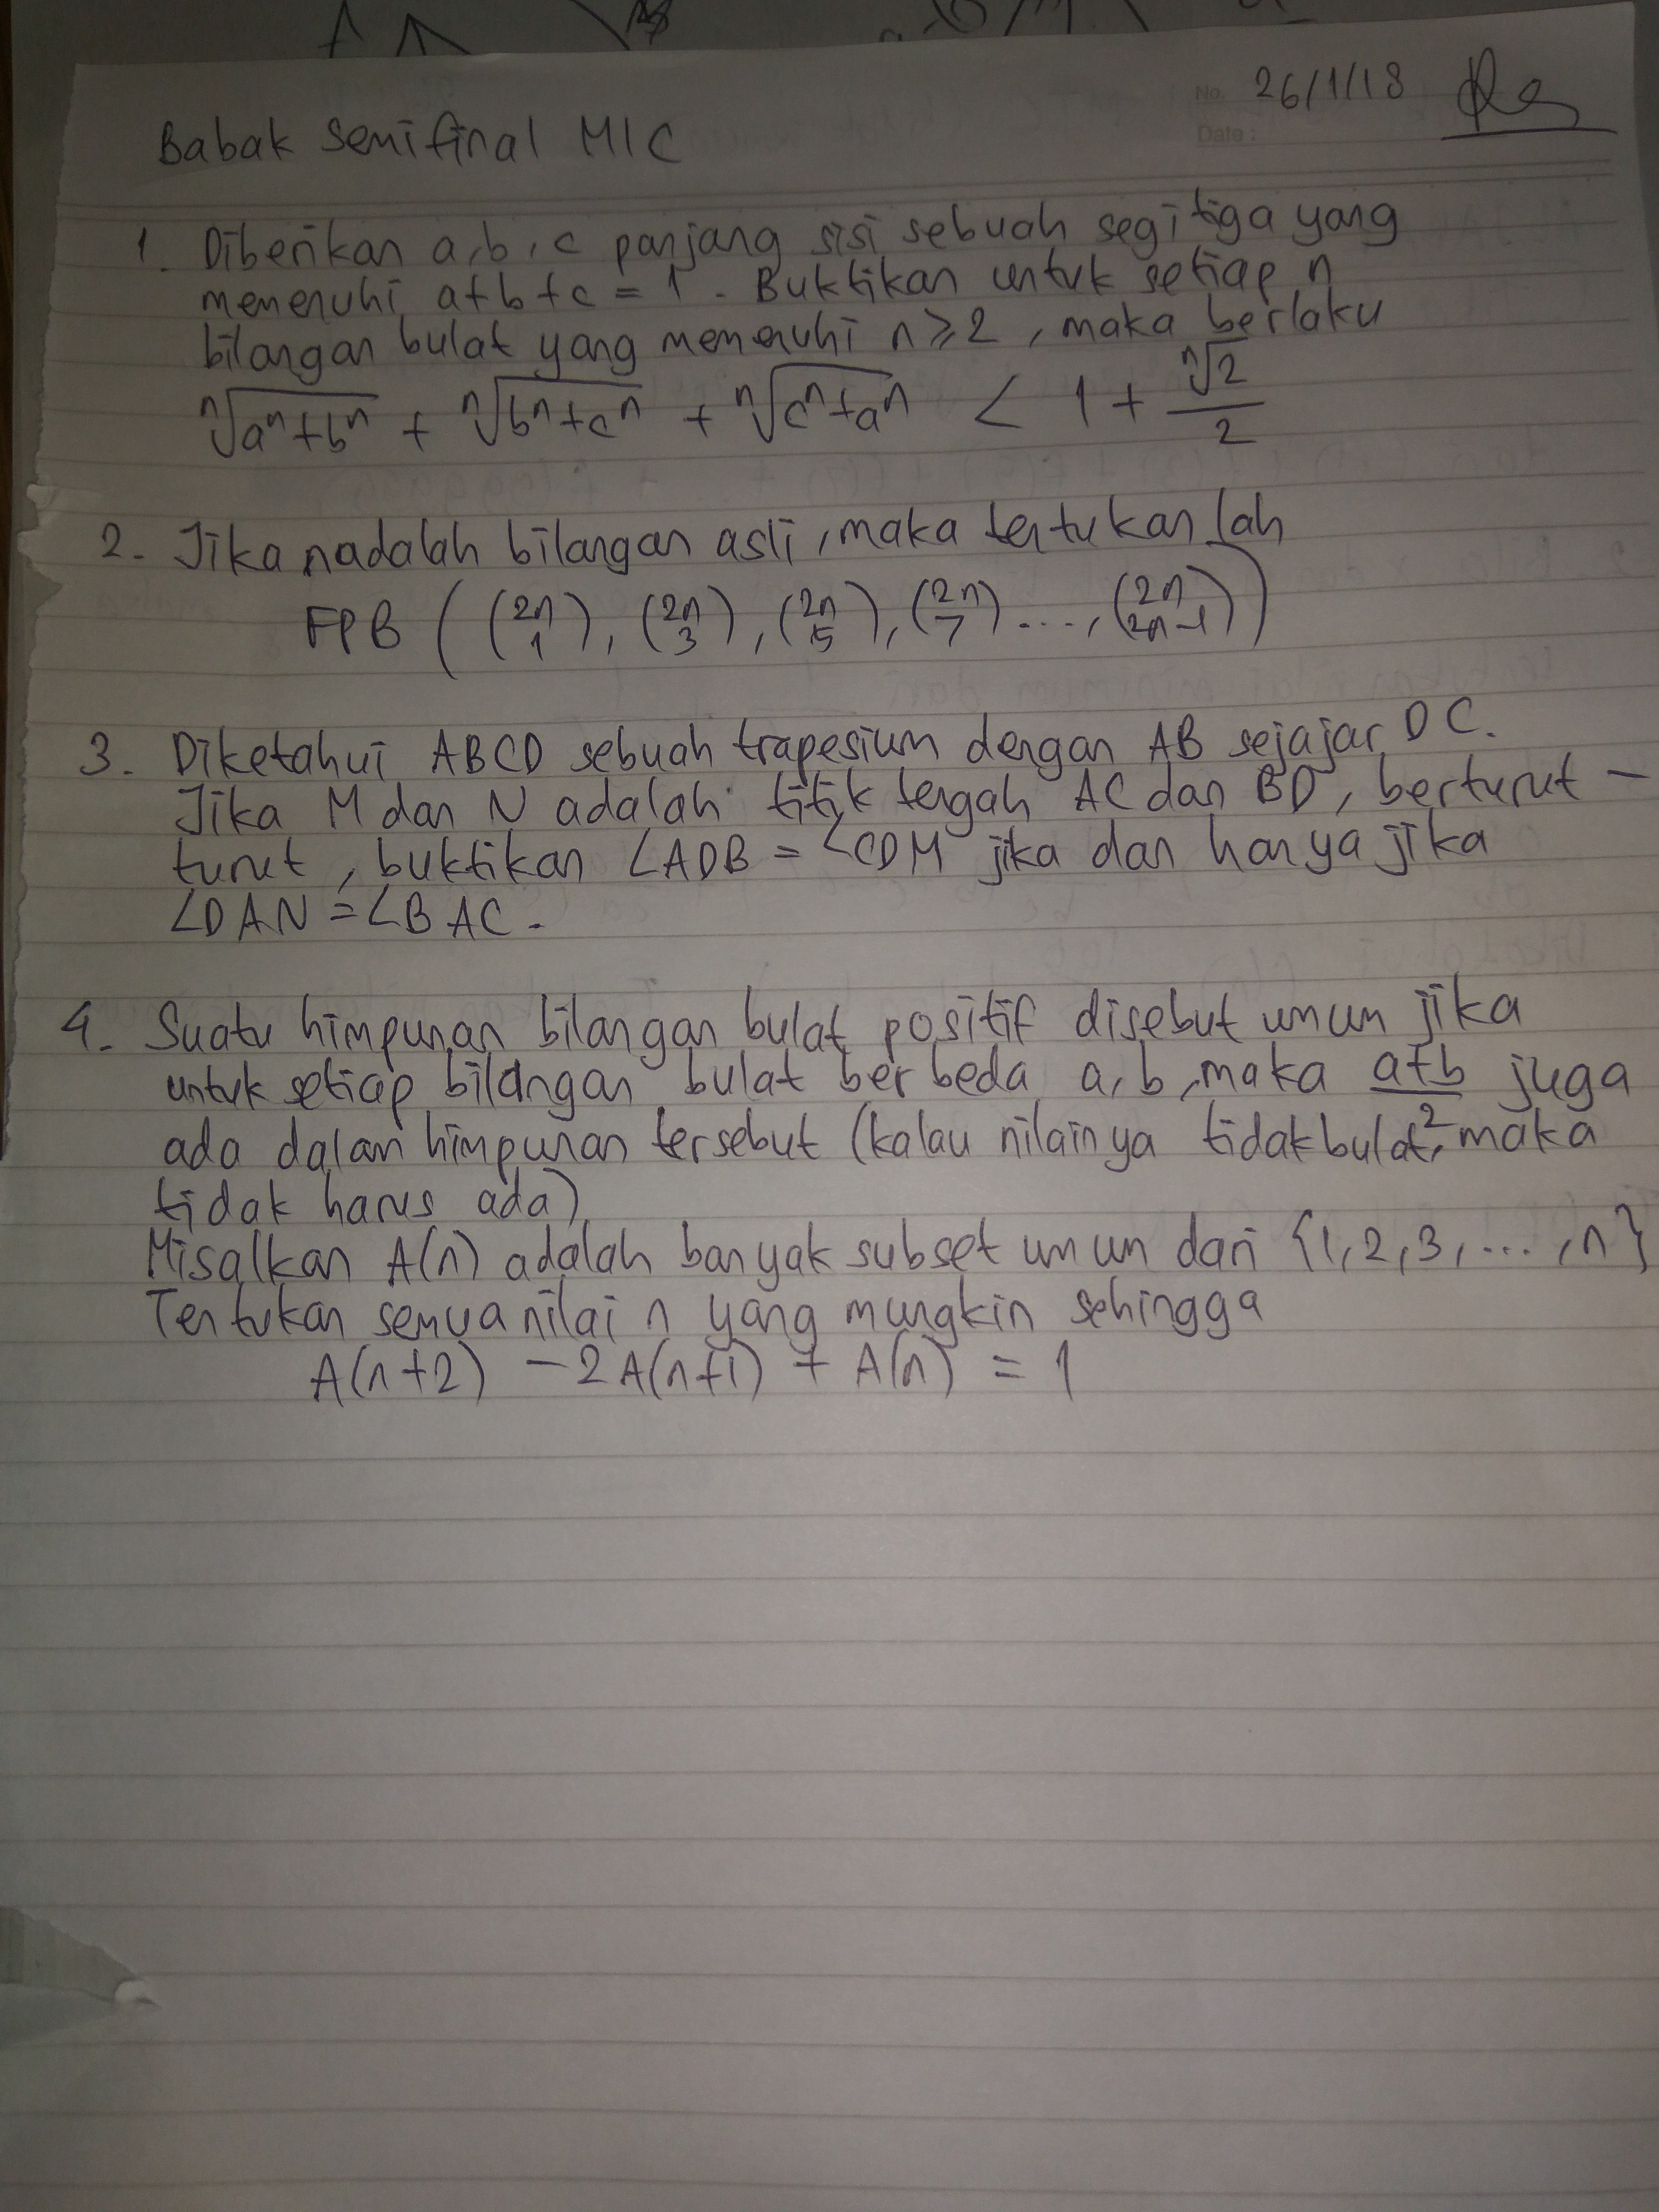 No. 26/1/18
Date:
Babak semifinal MIC
1. Diberikan a, b, c panjang sisi sebuah segitiga yang
memenuhi a+b+c = 1. Buktikan untuk setiap n
bilangan bulat yang memenuhi n ≥ 2, maka berlaku
ⁿ√(aⁿ+bⁿ) + ⁿ√(bⁿ+cⁿ) + ⁿ√(cⁿ+aⁿ) < 1 + ⁿ√2/2
2. Jika n adalah bilangan asli, maka tentukanlah
FPB ( (2n 1), (2n 3), (2n 5), (2n 7) ...., (2n 2n-1) )
3. Diketahui ABCD sebuah trapesium dengan AB sejajar DC.
Jika M dan N adalah titik tengah AC dan BD, berturut-
turut, buktikan ∠ADB = ∠CDM jika dan hanya jika
∠DAN = ∠BAC.
4. Suatu himpunan bilangan bulat positif disebut umum jika
untuk setiap bilangan bulat berbeda a, b, maka (a+b)/2 juga
ada dalam himpunan tersebut (kalau nilainya tidak bulat, maka
tidak harus ada)
Misalkan A(n) adalah banyak subset umum dari {1, 2, 3, ..., n}
Tentukan semua nilai n yang mungkin sehingga
A(n+2) - 2A(n+1) + A(n) = 1